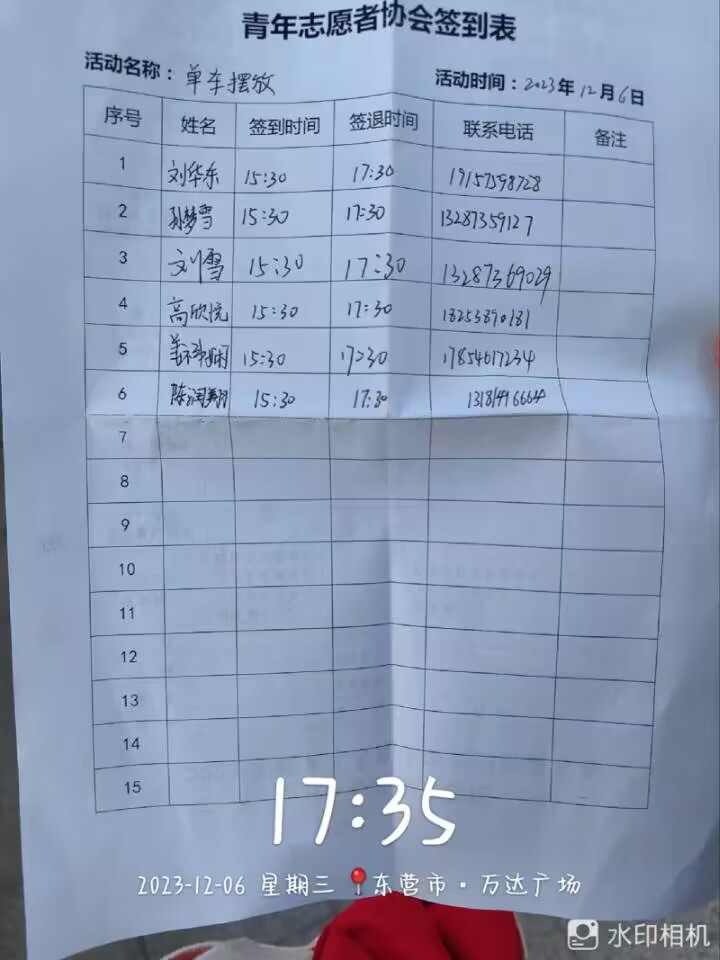 青年志愿者协会签到表
活动名称：单车摆放 活动时间：2023年12月6日
序号 姓名 签到时间 签退时间 联系电话 备注
1 刘华东 15:30 17:30 19157598728
2 孙梦雪 15:30 17:30 13287359127
3 刘雪 15:30 17:30 13287369029
4 高欣悦 15:30 17:30
5 15:30 17:30 17854617234
6 陈润翔 15:30 17:30
7
8
9
10
11
12
13
14
15
17:35
2023-12-06 星期三 东营市·万达广场
水印相机